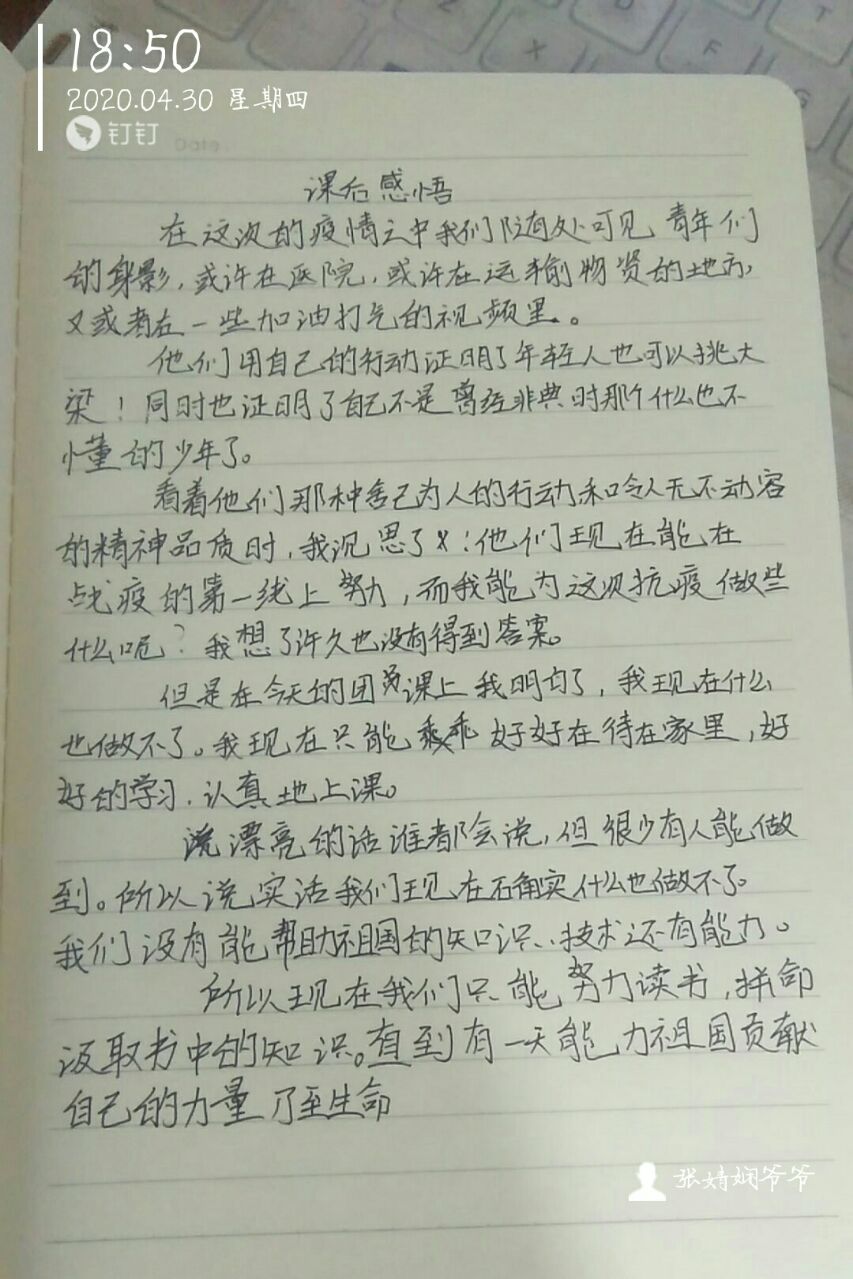 18:50
2020.04.30 星期四
钉钉
Date
课后感悟
在这次的疫情之中我们随处可见青年们
的身影,或许在医院,或许在运输物资的地方,
又或者在一些加油打气的视频里。
他们用自己的行动证明了年轻人也可以挑大
梁!同时也证明了自己不是曾经非典时那个什么也不
懂的少年了。
看着他们那种舍己为人的行动和令人无不动容
的精神品质时,我沉思了:他们现在能在
战疫的第一线上努力,而我能为这次抗疫做些
什么呢?我想了许久也没有得到答案。
但是在今天的团员课上我明白了,我现在什么
也做不了。我现在只能乖 好好在待在家里,好
好的学习.认真地上课。
漂亮的话谁都会说,但很少有人能做
到。所以说实话我们现在确实什么也做不了。
我们没有能帮助祖国的知识、技术还有能力。
所以现在我们只能努力读书,拼命
汲取书中的知识。直到有一天能力祖国贡献
自己的力量乃至生命
张婧娴爷爷